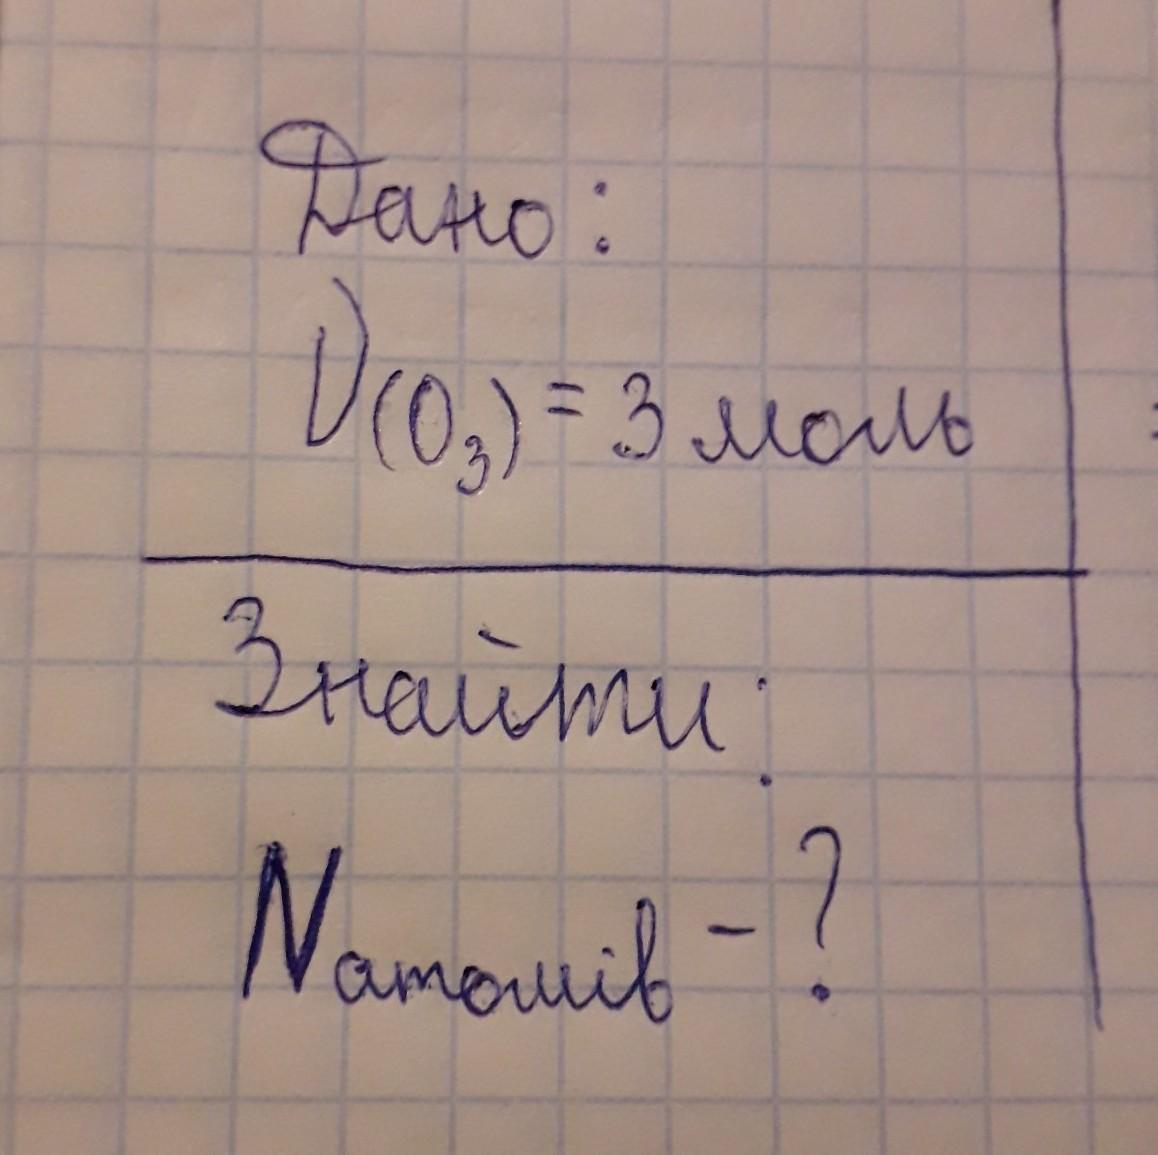 Дано:
ν(O₃) = 3 моль
Знайти:
Nатомів - ?